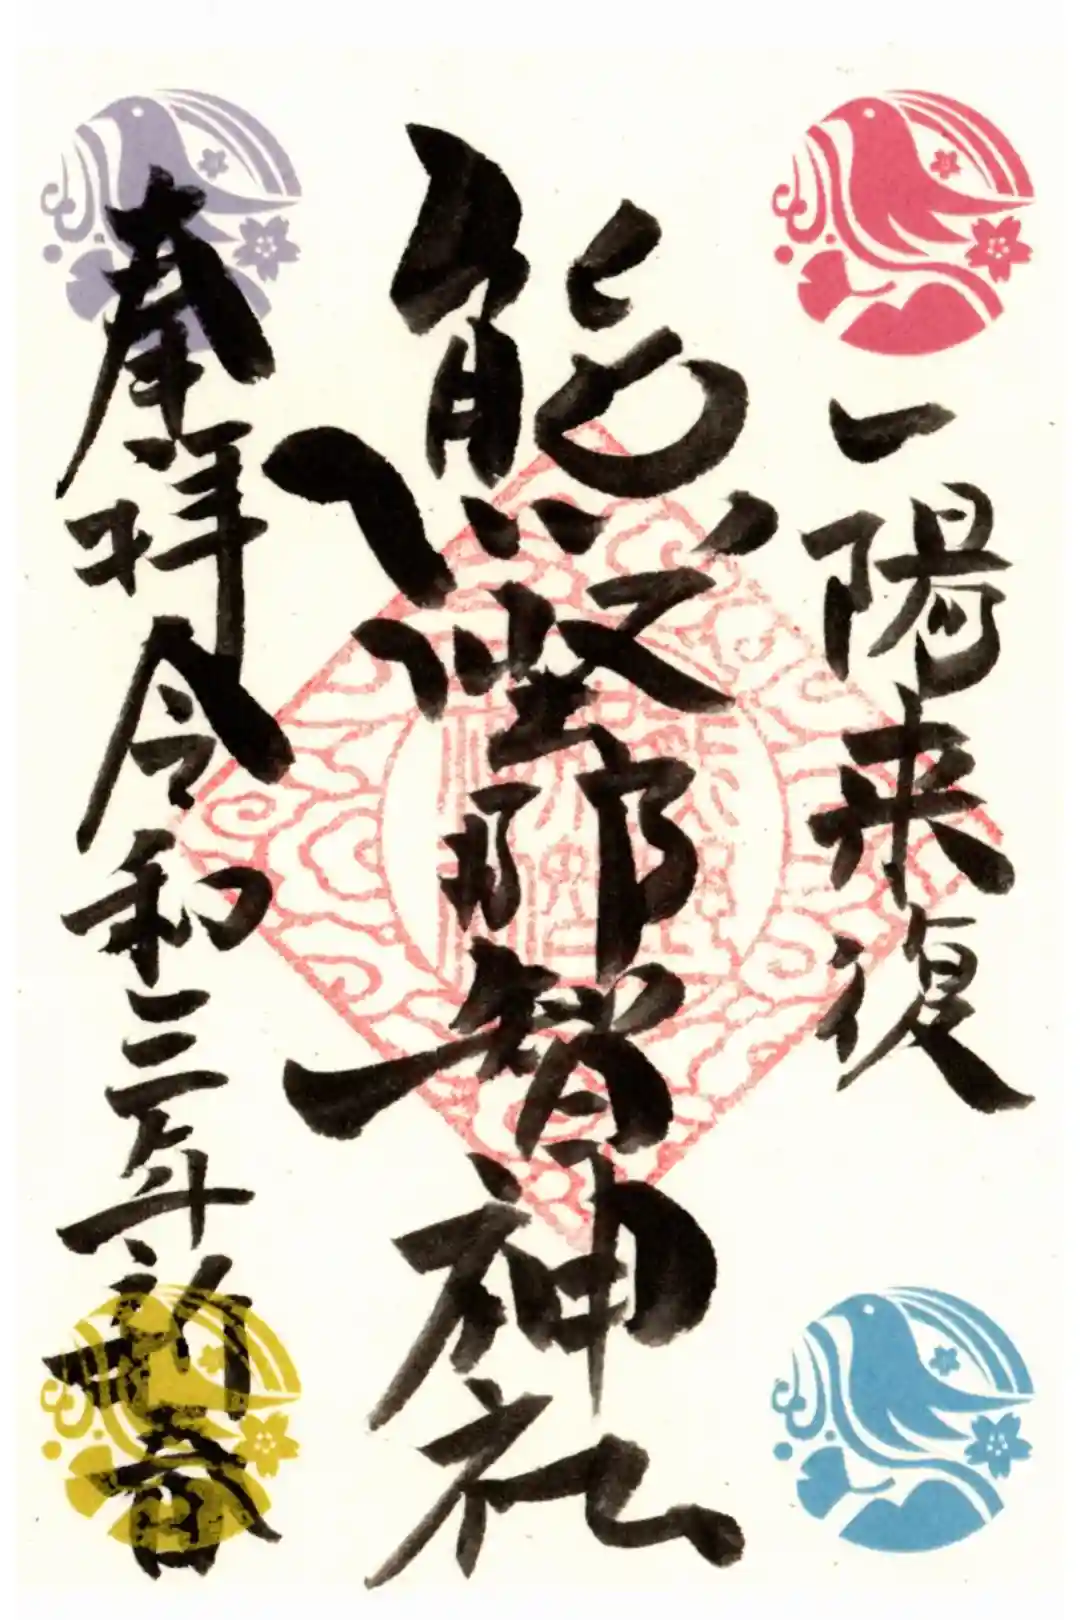 一陽来復
熊野那智神社
奉拝 令和三年新春